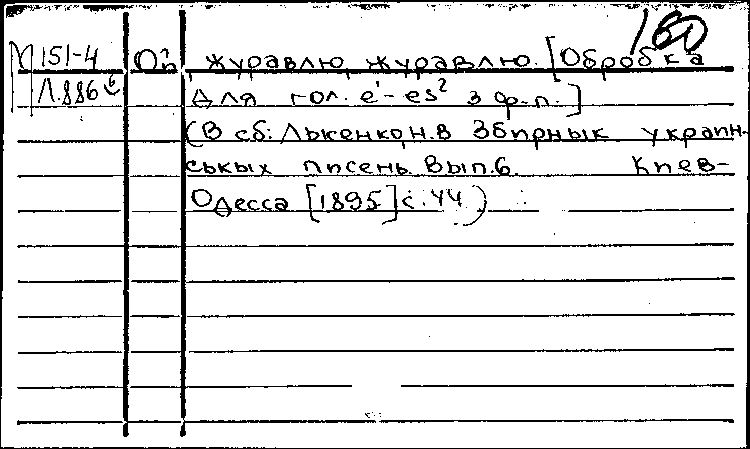 160
М 151-4 Ой, журавлю, журавлю. [Обробка
Л.886 для гол. e'-es² з ф-п.]
(В сб: Лысенко, н.в Збирнык украин-
ськых писень. Вып. 6. Киев-
Одесса [1895] с. 44)